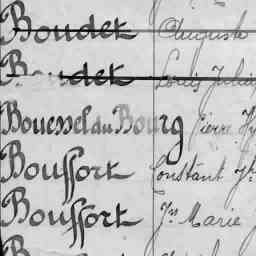 Boudet Auguste
Boudet Louis Julien
Bouessel du Bourg Pierre
Boussort Constant
Boussort Jn Marie